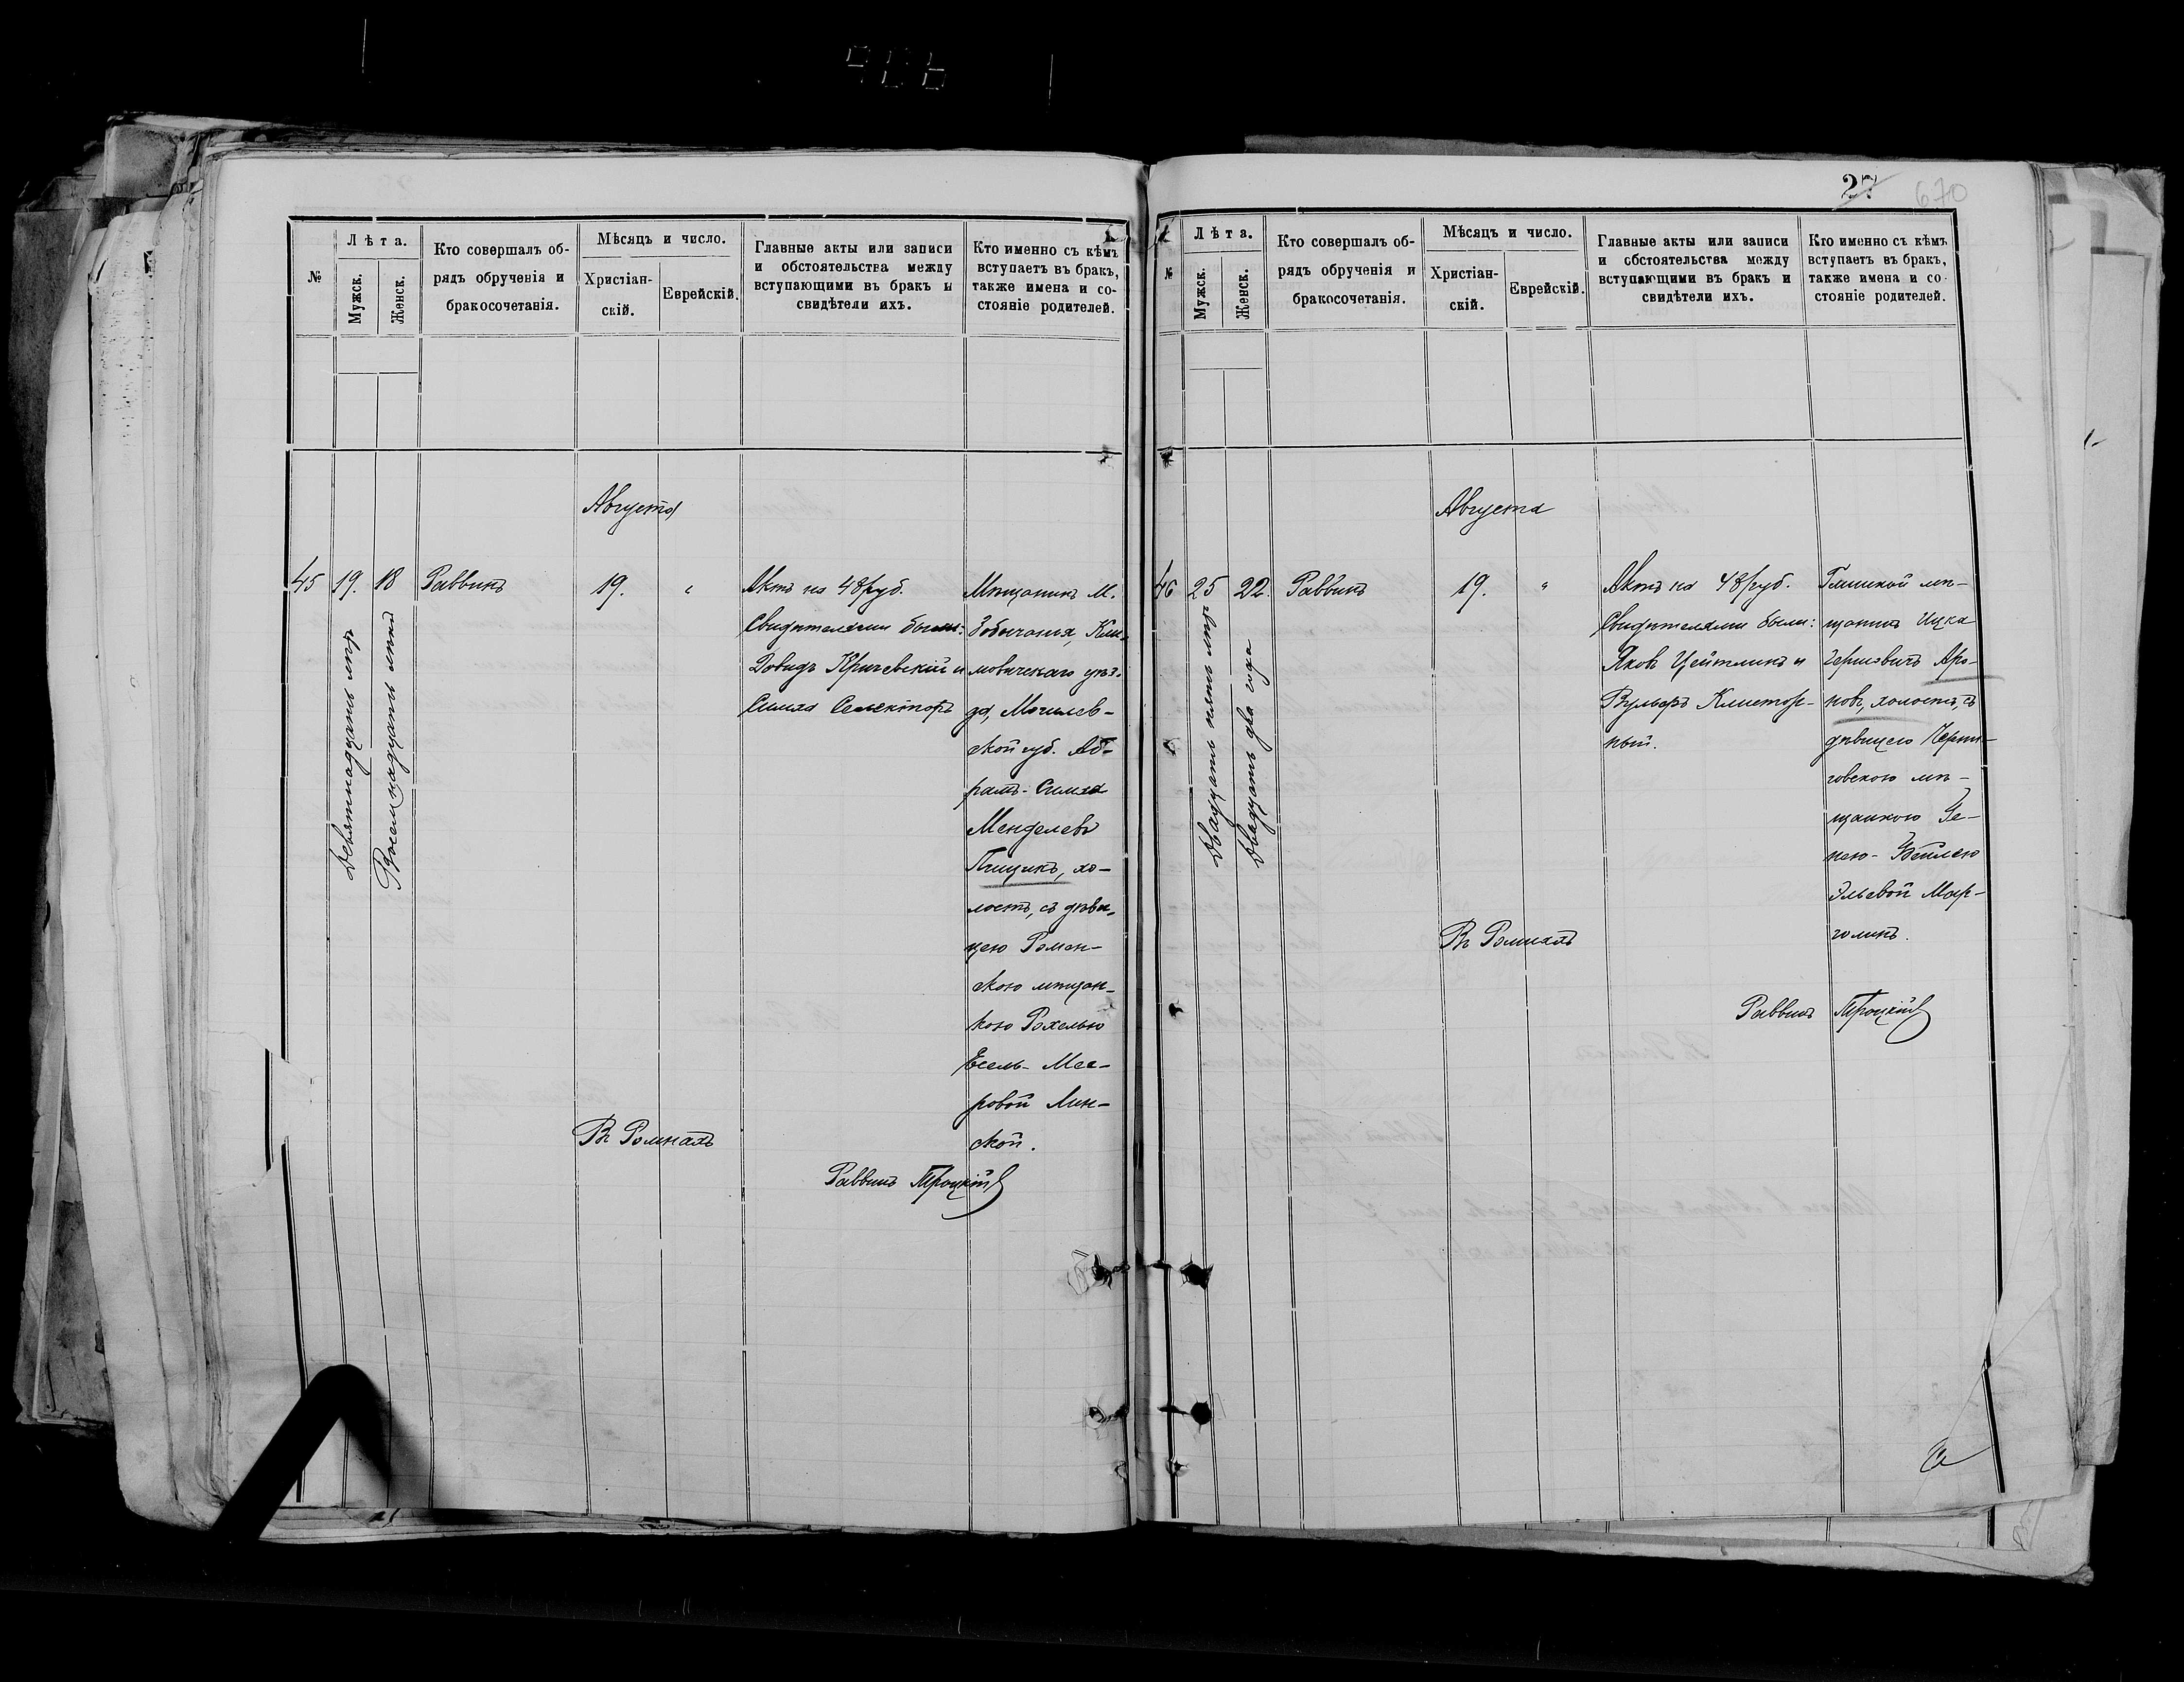 27 670
№
Лѣта.
Мужск.
Женск.
Кто совершалъ об-
рядъ обрученія и
бракосочетанія.
Мѣсяцъ и число.
Христіан-
скій.
Еврейскій.
Главные акты или записи
и обстоятельства между
вступающими въ бракъ и
свидѣтели ихъ.
Кто именно съ кѣмъ
вступаетъ въ бракъ,
также имена и со-
стояніе родителей.
Августа
45
19.
Девятнадцать лѣтъ
18
Восемнадцать лѣтъ
Раввинъ
19.
"
Актъ на 48 руб.
Свидѣтелями были:
Довидъ Кричевскій и
Симха Селекторъ
Мѣщанинъ м.
Хотимска, Кли-
мовичскаго уѣз-
да, Могилев-
ской губ. Аб-
рамъ-Симха
Менделевъ
Пищикъ, хо-
лостъ, съ дѣви-
цею Ромен-
скою мѣщан-
кою Рохелью
Есель-Мее-
ровой Мин-
ской.
Въ Ромнахъ
Раввинъ Троцкій
№
Лѣта.
Мужск.
Женск.
Кто совершалъ об-
рядъ обрученія и
бракосочетанія.
Мѣсяцъ и число.
Христіан-
скій.
Еврейскій.
Главные акты или записи
и обстоятельства между
вступающими въ бракъ и
свидѣтели ихъ.
Кто именно съ кѣмъ
вступаетъ въ бракъ,
также имена и со-
стояніе родителей.
Августа
46
25
Двадцать пять лѣтъ
22.
Двадцать два года
Раввинъ
19.
"
Актъ на 48 руб.
Свидѣтелями были:
Яковъ Цейтлинъ и
Вульфъ Клистор-
ный.
Глинской мѣ-
щанинъ Ицка
Гершовичъ Аро-
новъ, холостъ, съ
дѣвицею Черни-
говскою мѣ-
щанкою Ге-
нею-Бейлею
Эльевой Мар-
голинъ.
Въ Ромнахъ
Раввинъ Троцкій